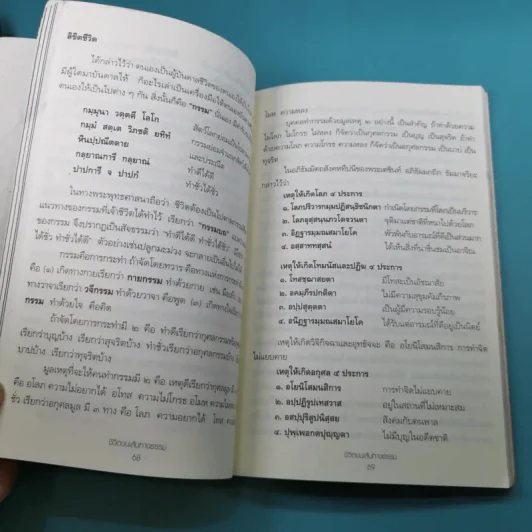 ลิขิตชีวิต
ได้กล่าวไว้ว่า ตนเองเป็นผู้บันดาลชีวิตของตนเอง
มีผู้ใดมาบันดาลให้ ก็อะไรเล่าเป็นเครื่องมือให้ตนเอง
ตนเองให้เป็นไปต่าง ๆ กัน สิ่งนั้นก็คือ "กรรม" นั่นเอง
กมฺมุนา วตฺตตี โลโก
กมฺมํ สตฺเต วิภชติ ยทิทํ
หีนปฺปณีตตาย
และประณีต
กลฺยาณการี กลฺยาณํ
ทำดีได้ดี
ปาปการี จ ปาปกํ
ทำชั่วได้ชั่ว
ในทางพระพุทธศาสนาถือว่า ชีวิตต้องเป็นไปตาม
แนวทางของกรรมที่เจ้าชีวิตได้ทำไว้ เรียกว่า "กรรมบถ"
ของกรรม จึงปรากฏเป็นสัจธรรมว่า "ทำดีได้ดี ทำชั่วได้ชั่ว"
ได้ชั่ว ทำชั่วได้ดี" ตัวอย่างเช่นปลูกมะม่วง จะกลาย
กรรมคือการกระทำ ถ้าจัดโดยทวาร คือทางแห่งการ
คือ (๑) เกิดทางกายเรียกว่า กายกรรม ทำด้วยกาย เช่น
ทางวาจาเรียกว่า วจีกรรม ทำด้วยวาจา คือพูด (๓) เกิดทาง
กรรม ทำด้วยใจ คือคิด
ถ้าจัดโดยการกระทำมี ๒ คือ ทำดีเรียกว่ากุศลกรรม
เรียกว่าบุญบ้าง เรียกว่าสุจริตบ้าง ทำชั่วเรียกว่าอกุศลกรรมบ้าง
บาปบ้าง เรียกว่าทุจริตบ้าง
มูลเหตุที่จะให้คนทำกรรมมี ๒ คือ เหตุดีเรียกว่ากุศลมูล
คือ อโลภ ความไม่อยากได้ อโทส ความไม่โกรธ อโมห ความ
ชั่ว เรียกว่าอกุศลมูล มี ๓ ทาง คือ โลภ ความอยากได้ โทส
ชีวิตบนเส้นทางธรรม
68
โมห ความหลง
บุคคลทำกรรมด้วยมูลเหตุ ๒ อย่างนี้ เป็นสำคัญ ถ้าทำด้วยความ
ไม่โลภ ไม่โกรธ ไม่หลง ก็จัดว่าเป็นกุศลกรรม เป็นบุญ เป็นสุจริต ถ้า
ทำด้วยความโลภ ความโกรธ ความหลง ก็จัดว่าเป็นอกุศลกรรม เป็นบาป เป็น
ทุจริต
กล่าวไว้ว่า
เหตุให้เกิดโลภ ๔ ประการ
๑. โลภปริวารกมฺมปฏิสนฺธิกนิตา กำเนิดโดยกรรมที่โลภเป็นบริวาร
๒. โลภอุสฺสนฺนภวโตจวนตา จุติมาแต่ชาติที่หนาไปด้วยโลภ
๓. อิฏฺฐารมฺมณสมาโยโค
๔. อสฺสาททสฺสนํ ได้เห็นสิ่งที่น่าชื่นชมเป็นอาจิณ
เหตุให้เกิดโทมนัสและปฏิฆ ๔ ประการ
๑. โทสชฺฌาสยตา มีโทสะเป็นอัธยาศัย
๒. อคมฺภีรปกติตา ไม่มีความสุขุมคัมภีรภาพ
๓. อปฺปสฺสุตตา เป็นผู้มีความรอบรู้น้อย
๔. อนิฏฺฐารมฺมณสมาโยโค ได้รับแต่อารมณ์ที่ดีอยู่เป็นนิตย์
เหตุให้เกิดวิจิกิจฉาและอุทธัจจะ คือ อโยนิโสมนสิการ การทำจิต
ไม่แยบคาย
เหตุให้เกิดอกุศล ๔ ประการ
๑. อโยนิโสมนสิการ การทำจิตไม่แยบคาย
๒. อปฺปฏิรูปเทสวาส อยู่ในสถานที่ไม่เหมาะสม
๓. อสปฺปุริสูปนิสฺสย สังคมกับคนพาล
๔. ปุพฺเพอกตปุญฺญตา ไม่มีบุญในอดีตชาติ
ชีวิตบนเส้นทางธรรม
69